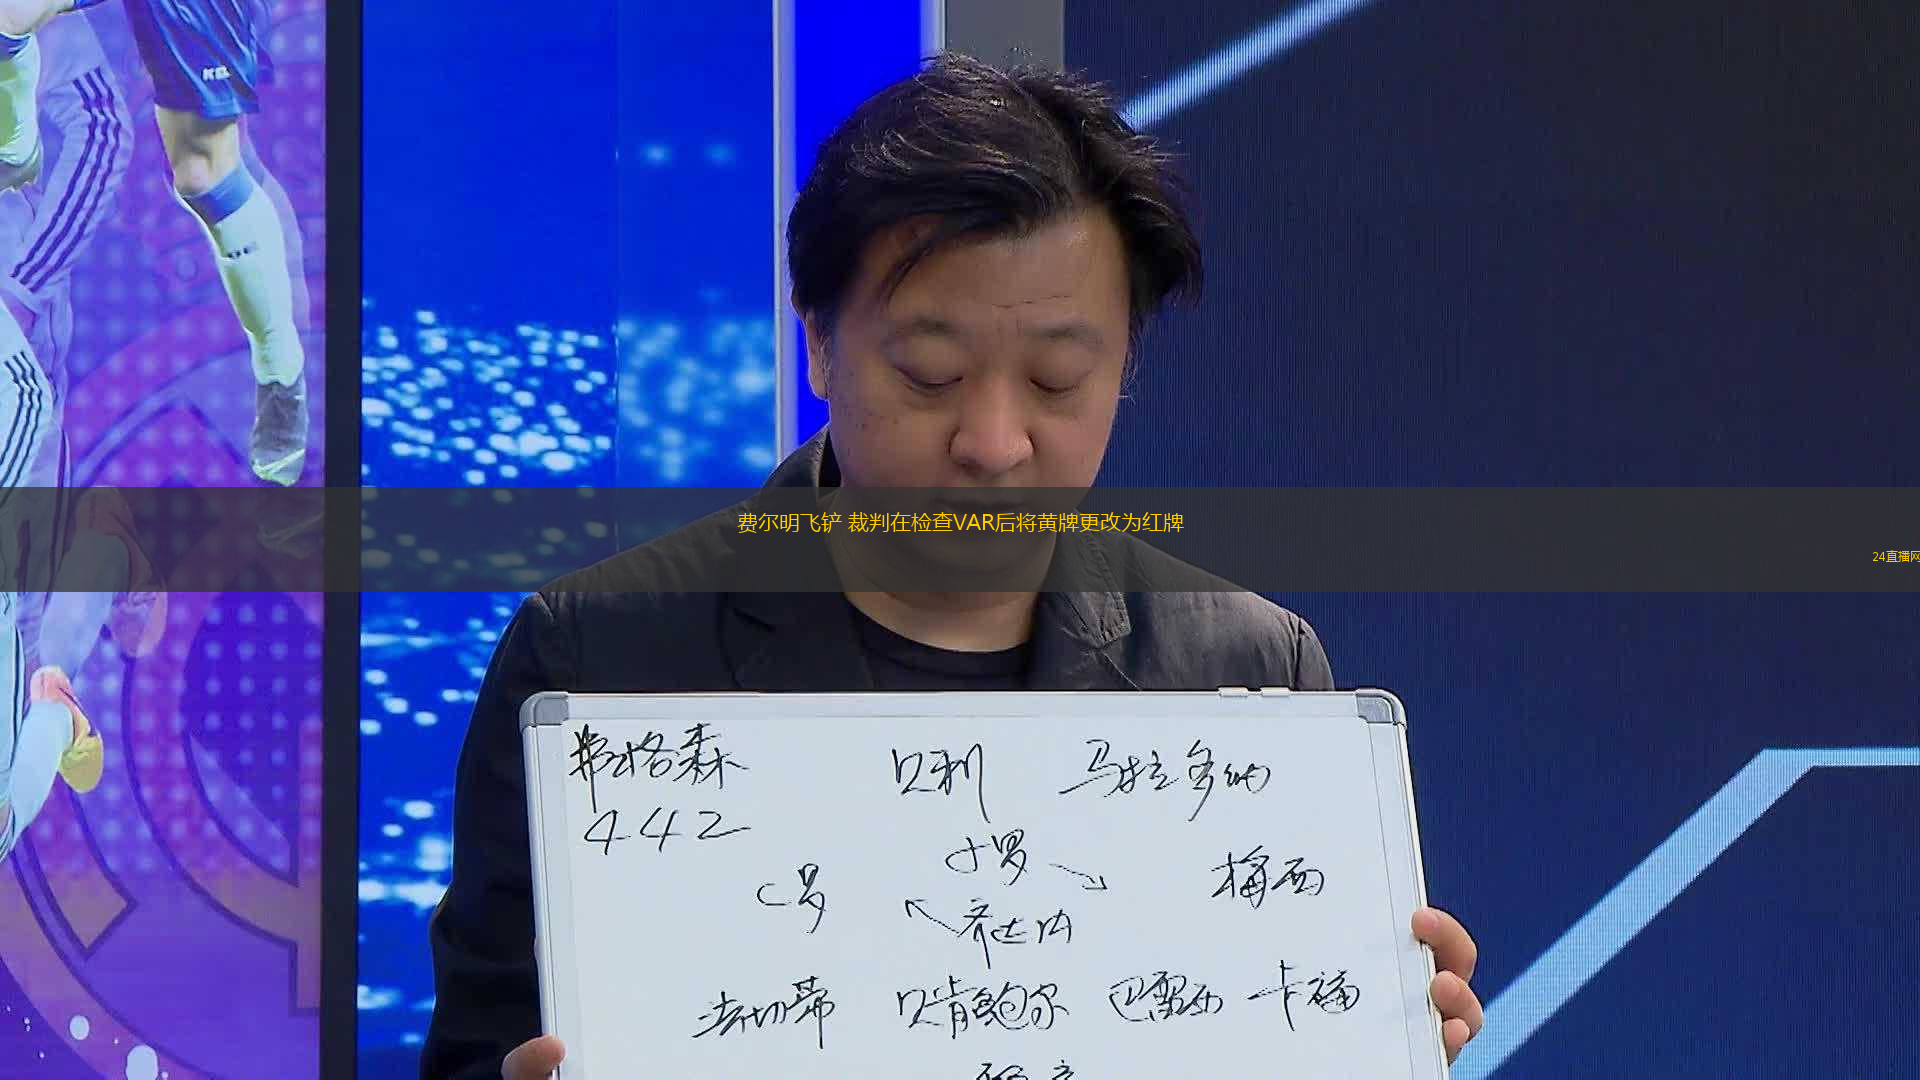 费尔明飞铲 裁判在检查VAR后将黄牌更改为红牌
24直播网
弗格森 贝利 马拉多纳
442
小罗
C罗 梅西
齐达内
法切蒂 贝肯鲍尔 巴雷西 卡福